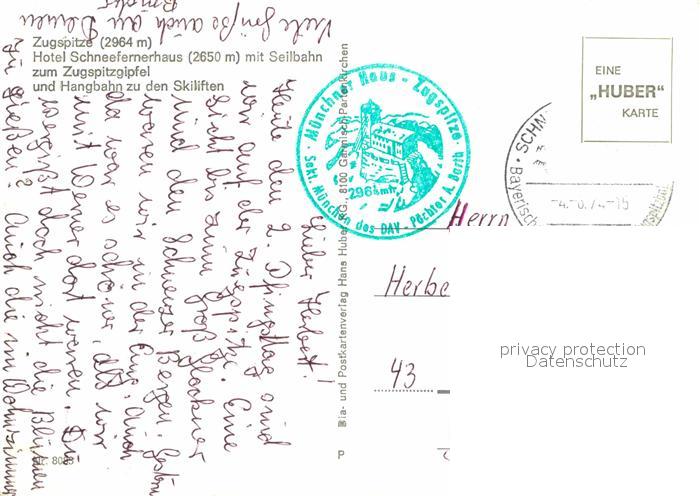 Zugspitze (2964 m)
Hotel Schneefernerhaus (2650 m) mit Seilbahn
zum Zugspitzgipfel
und Hangbahn zu den Skiliften
Viele Grüße auch an Deinen
Bruder
Lieber Herbert!
Heute den 2. Pfingsttag sind
wir auf der Zugspitze. Eine
Sicht bis zum Großglockner
und den Schweizer Bergen. Gestern
waren wir in der Eng. Auch
da war es schöner, als wir
mit Werner dort waren. Du
vergißt doch nicht die Blumen
zu gießen? Auch die im Wohnzimmer
Nr. 8085
Bild- und Postkartenverlag Hans Huber KG., 8100 Garmisch-Partenkirchen
Münchner Haus - Zugspitze
2964 mtr.
Sekt. München des DAV - Pächter A. Barth
EINE
„HUBER“
KARTE
SCHN
Bayerisch
-4.-6.74-15
Herrn
Herbe
43
P
privacy protection
Datenschutz